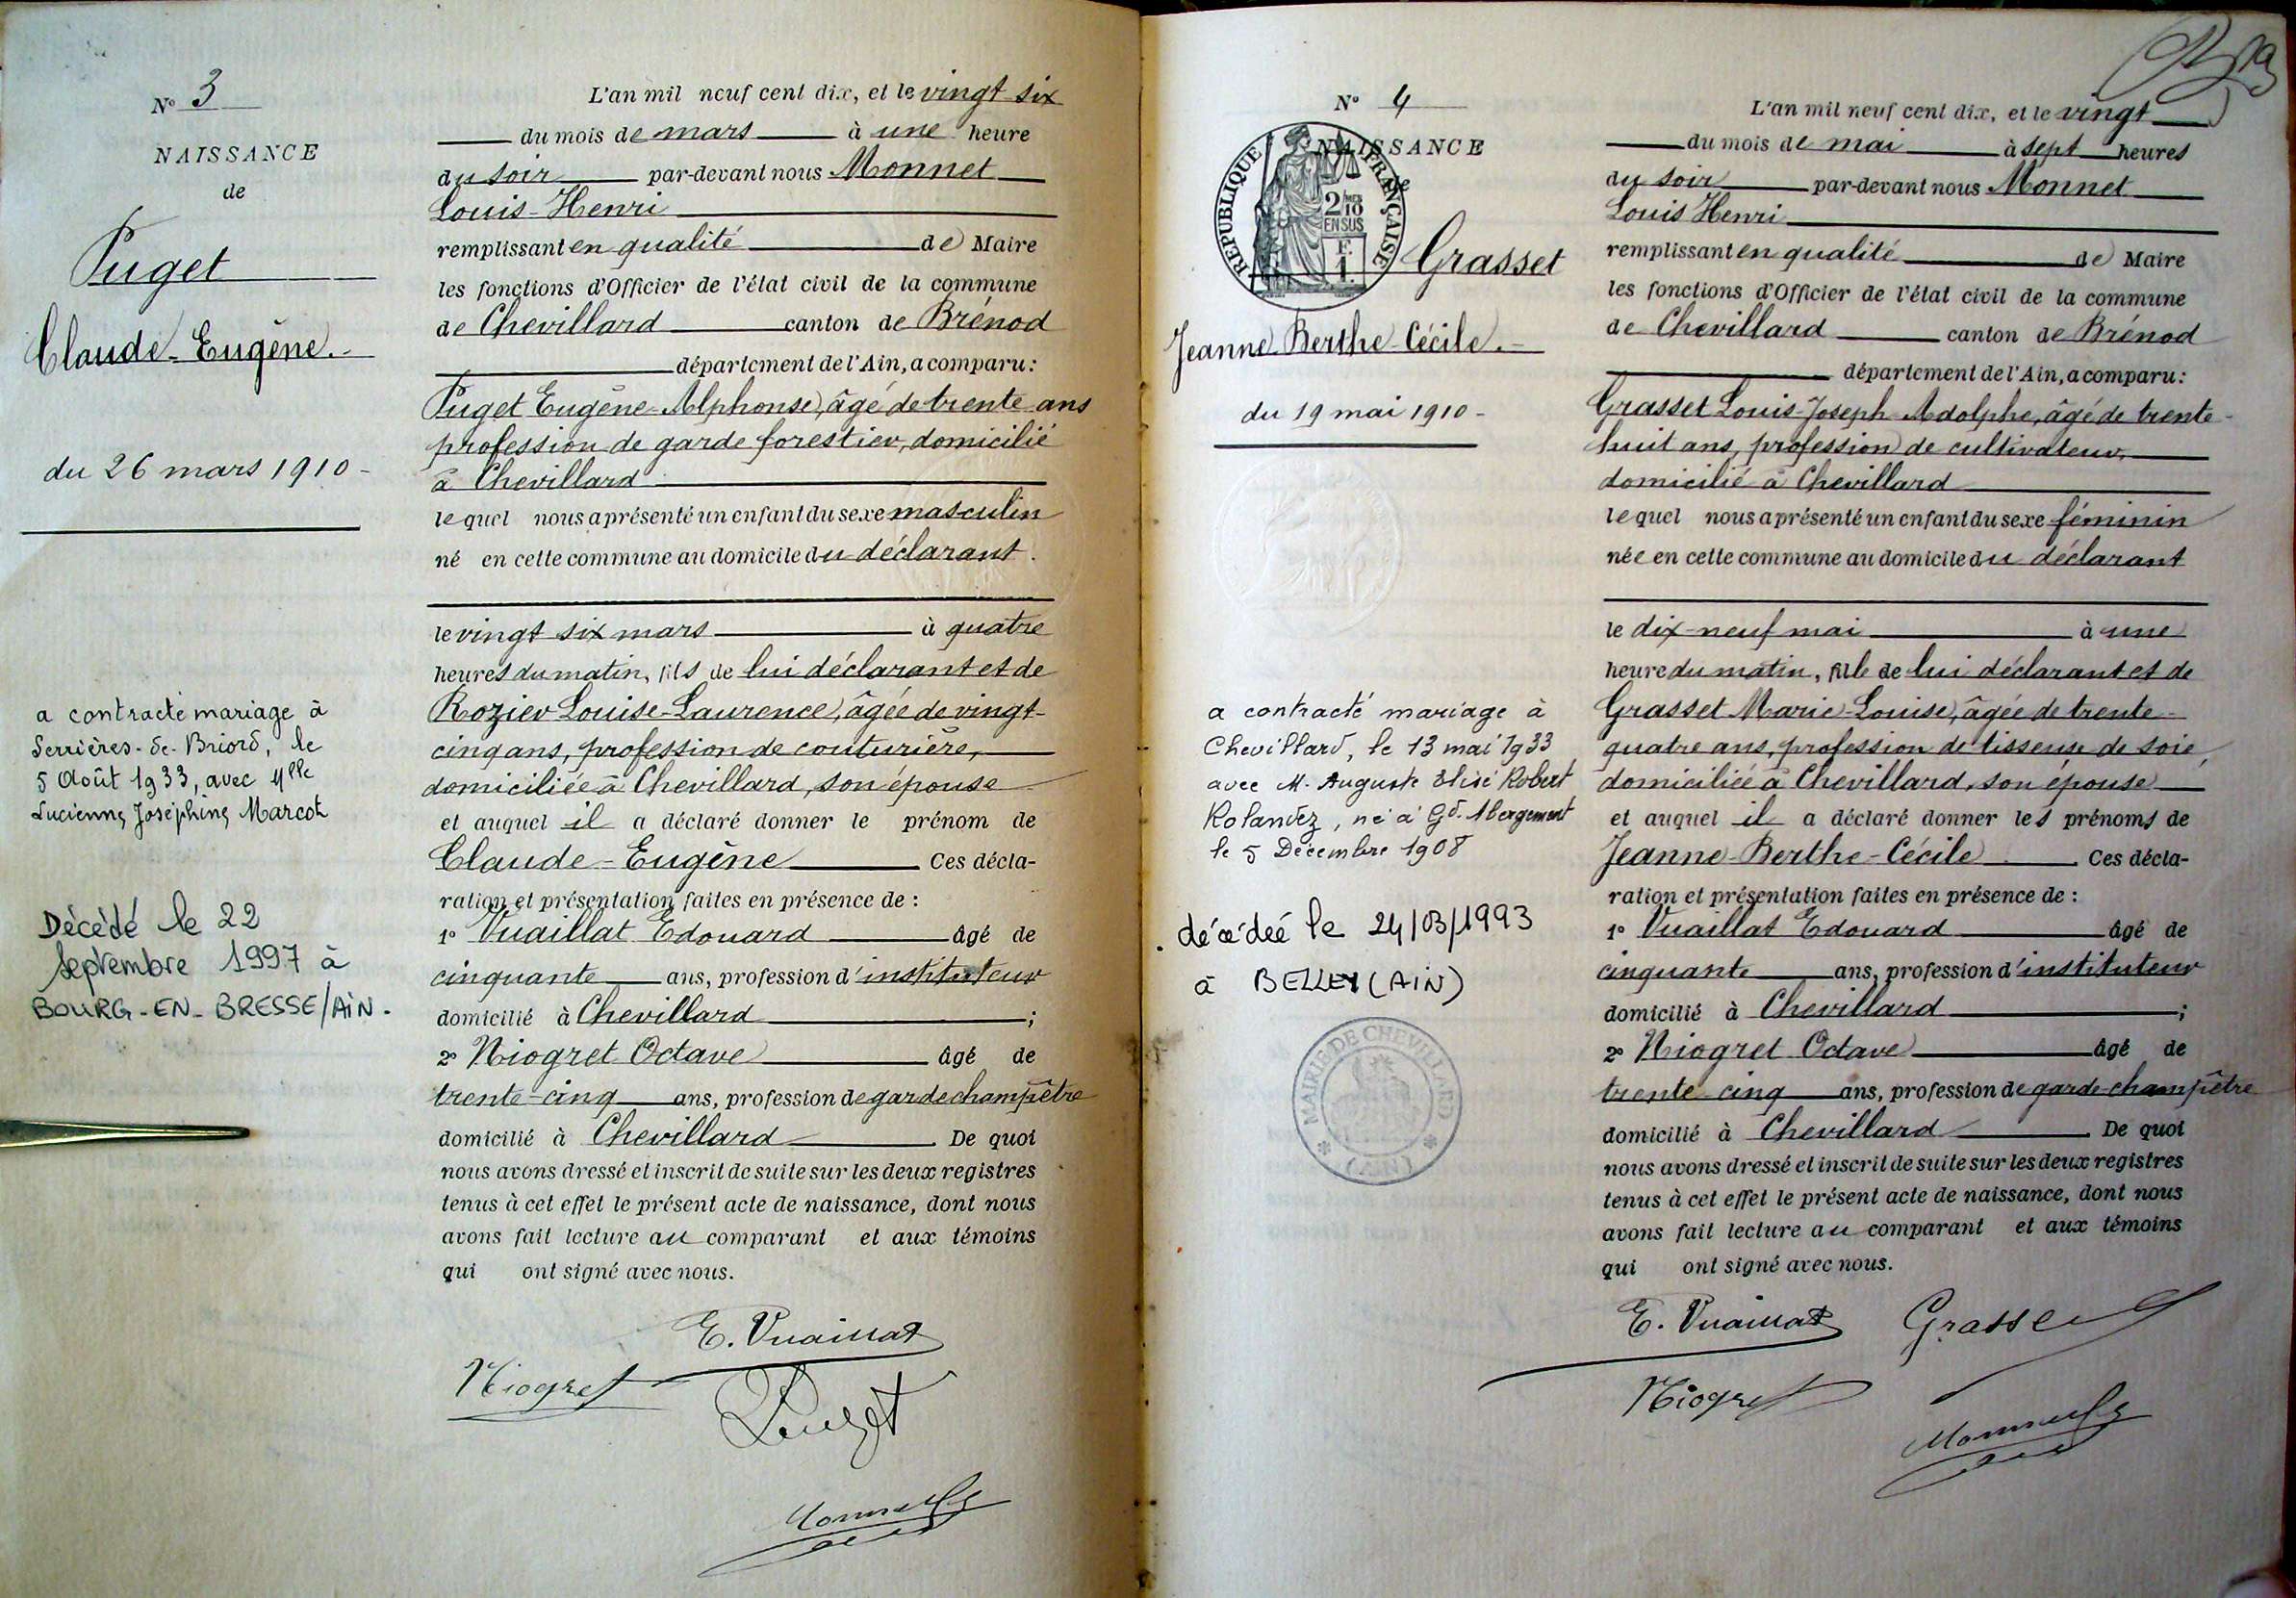 N° 3
NAISSANCE
de
Puget
Claude-Eugène.
du 26 mars 1910
a contracté mariage à
Serrières-de-Briord, le
5 Août 1933, avec Mlle
Lucienne Joséphine Marcot
Décédé le 22
septembre 1997 à
BOURG-EN-BRESSE/AIN.
L'an mil neuf cent dix, et le vingt six
du mois de mars à une heure
du soir par-devant nous Monnet
Louis-Henri
remplissant en qualité de Maire
les fonctions d'Officier de l'état civil de la commune
de Chevillard canton de Brénod
département de l'Ain, a comparu :
Puget Eugène-Alphonse, âgé de trente ans
profession de garde forestier, domicilié
à Chevillard
lequel nous a présenté un enfant du sexe masculin
né en cette commune au domicile du déclarant.
le vingt six mars à quatre
heures du matin, fils de lui déclarant et de
Rozier Louise-Laurence, âgée de vingt-
cinq ans, profession de couturière,
domiciliée à Chevillard, son épouse
et auquel il a déclaré donner le prénom de
Claude-Eugène Ces décla-
ration et présentation faites en présence de :
1° Vuaillat Edouard âgé de
cinquante ans, profession d'instituteur
domicilié à Chevillard ;
2° Niogret Octave âgé de
trente-cinq ans, profession de garde champêtre
domicilié à Chevillard De quoi
nous avons dressé et inscrit de suite sur les deux registres
tenus à cet effet le présent acte de naissance, dont nous
avons fait lecture au comparant et aux témoins
qui ont signé avec nous.
E. Vuaillat
Niogret
Puget
Monnet
N° 4
NAISSANCE
de
RÉPUBLIQUE FRANÇAISE
2/10
EN SUS
F.
1.
Grasset
Jeanne-Berthe-Cécile.
du 19 mai 1910
a contracté mariage à
Chevillard, le 13 mai 1933
avec M. Auguste Elisé Robert
Rolandez, né à Gd. Abergement
le 5 Décembre 1908
décédée le 24/03/1993
à BELLEY (AIN)
MAIRIE DE CHEVILLARD
(AIN)
L'an mil neuf cent dix, et le vingt
du mois de mai à sept heures
du soir par-devant nous Monnet
Louis Henri
remplissant en qualité de Maire
les fonctions d'Officier de l'état civil de la commune
de Chevillard canton de Brénod
département de l'Ain, a comparu :
Grasset Louis-Joseph-Adolphe, âgé de trente-
huit ans, profession de cultivateur,
domicilié à Chevillard
lequel nous a présenté un enfant du sexe féminin
née en cette commune au domicile du déclarant
le dix-neuf mai à une
heure du matin, fille de lui déclarant et de
Grasset Marie-Louise, âgée de trente-
quatre ans, profession de tisseuse de soie,
domiciliée à Chevillard, son épouse
et auquel il a déclaré donner les prénoms de
Jeanne-Berthe-Cécile Ces décla-
ration et présentation faites en présence de :
1° Vuaillat Edouard âgé de
cinquante ans, profession d'instituteur
domicilié à Chevillard ;
2° Niogret Octave âgé de
trente-cinq ans, profession de garde-champêtre
domicilié à Chevillard De quoi
nous avons dressé et inscrit de suite sur les deux registres
tenus à cet effet le présent acte de naissance, dont nous
avons fait lecture au comparant et aux témoins
qui ont signé avec nous.
E. Vuaillat Grasset
Niogret
Monnet